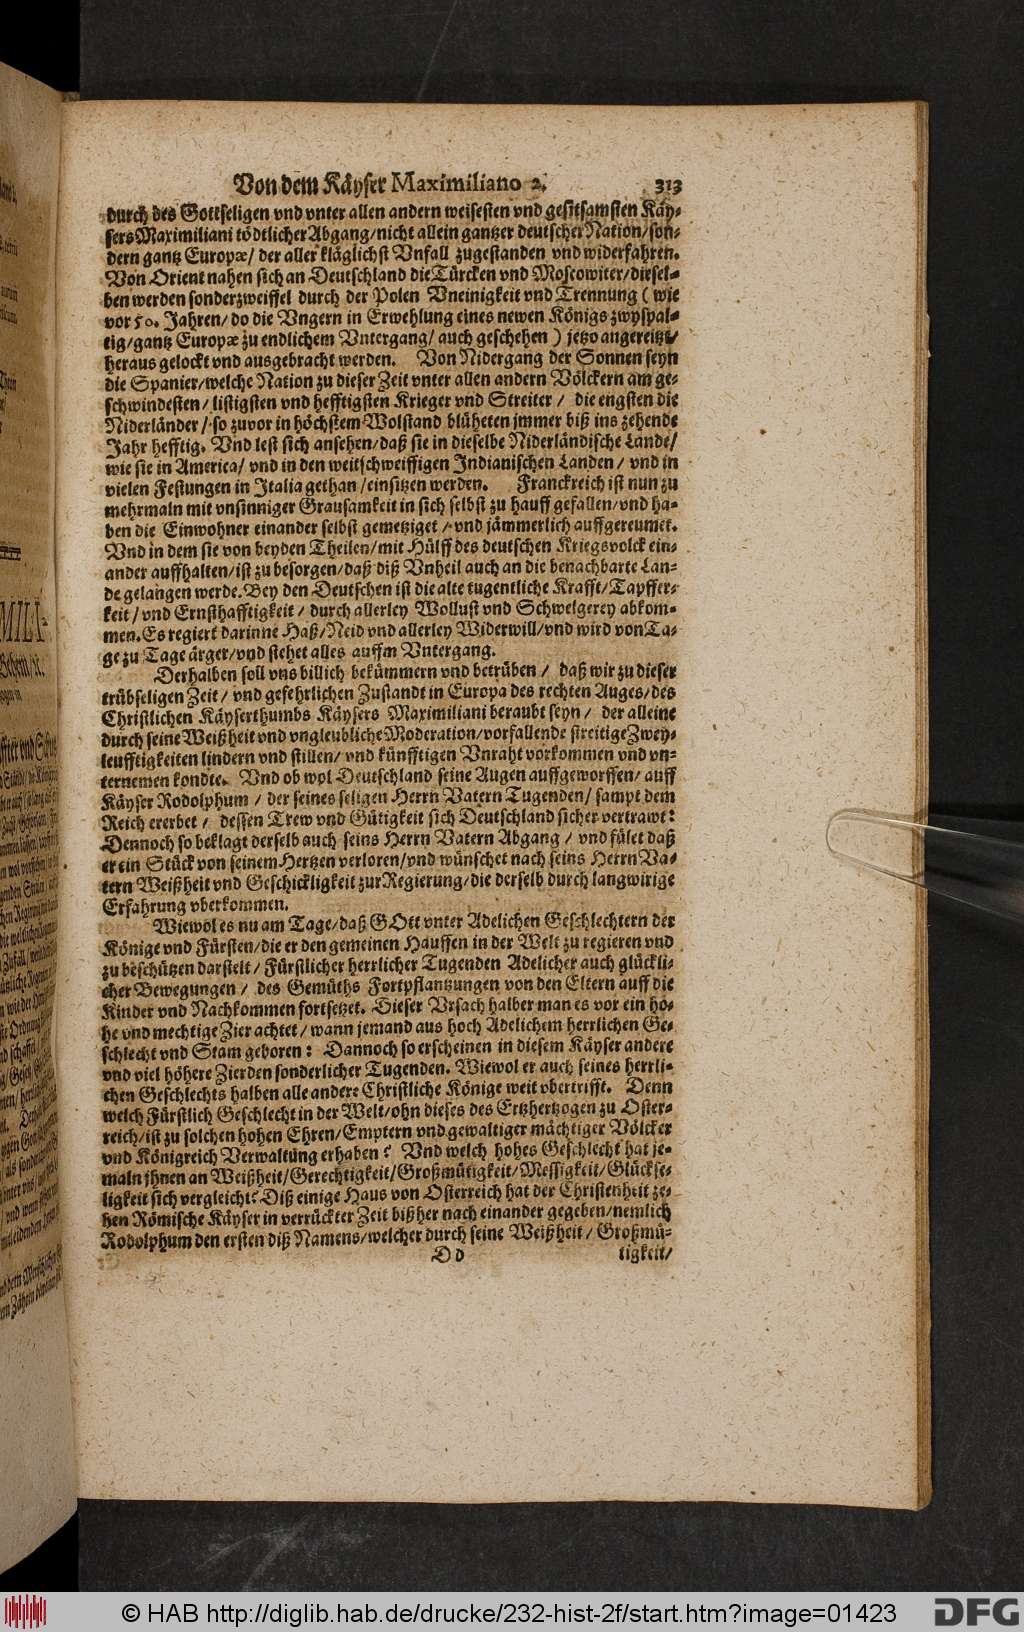 Von dem Käyser Maximiliano 2. 313
durch des Gottseligen vnd vnter allen andern weisesten vnd gesitsamsten Käy-
sers Maximiliani tödtlicher Abgang/nicht allein gantzer deutscher Nation/son-
dern gantz Europæ/ der aller kläglichst Vnfall zugestanden vnd widerfahren.
Von Orient nahen sich an Deutschland die Türcken vnd Moscowiter/diesel-
ben werden sonder zweiffel durch der Polen Vneinigkeit vnd Trennung ( wie
vor 50. Jahren/ do die Vngern in Erwehlung eines newen Königs zwyspal-
tig/gantz Europæ zu endlichem Vntergang/ auch geschehen ) jetzo angereitzt/
heraus gelockt vnd ausgebracht werden. Von Nidergang der Sonnen seyn
die Spanier/welche Nation zu dieser Zeit vnter allen andern Völckern am ge-
schwindesten/ listigsten vnd hefftigsten Krieger vnd Streiter / die engsten die
Niderländer / so zuvor in höchstem Wolstand blüheten jmmer biß ins zehende
Jahr hefftig. Vnd lest sich ansehen/daß sie in dieselbe Niderländische Lande/
wie sie in America/ vnd in den weitschweiffigen Indianischen Landen / vnd in
vielen Festungen in Italia gethan /einsitzen werden. Franckreich ist nun zu
mehrmaln mit vnsinniger Grausamkeit in sich selbst zu hauff gefallen/vnd ha-
ben die Einwohner einander selbst gemetziget / vnd jämmerlich auffgereumet.
Vnd in dem sie von beyden Theilen/mit Hülff des deutschen Kriegsvolck ein-
ander auffhalten/ist zu besorgen/daß diß Vnheil auch an die benachbarte Lan-
de gelangen werde. Bey den Deutschen ist die alte tugentliche Krafft/Tapffer-
keit / vnd Ernsthafftigkeit / durch allerley Wollust vnd Schwelgerey abkom-
men. Es regiert darinne Haß/Neid vnd allerley Widerwill/vnd wird von Ta-
ge zu Tage ärger/vnd stehet alles auffm Vntergang.
Derhalben soll vns billich bekümmern vnd betrüben / daß wir zu dieser
trübseligen Zeit / vnd gefehrlichen Zustandt in Europa des rechten Auges/des
Christlichen Käyserthumbs Käysers Maximiliani beraubt seyn / der alleine
durch seine Weißheit vnd vngleubliche Moderation/vorfallende streitige Zwey-
leufftigkeiten lindern vnd stillen/ vnd künfftigen Vnraht vorkommen vnd vn-
ternemen kondte. Vnd ob wol Deutschland seine Augen auffgeworffen/ auff
Käyser Rodolphum / der seines seligen Herrn Vatern Tugenden/ sampt dem
Reich ererbet / dessen Trew vnd Gütigkeit sich Deutschland sicher vertrawt:
Dennoch so beklagt derselb auch seins Herrn Vatern Abgang / vnd fület daß
er ein Stück von seinem Hertzen verloren/vnd wünschet nach seins Herrn Va-
tern Weißheit vnd Geschickligkeit zur Regierung/die derselb durch langwirige
Erfahrung vberkommen.
Wiewol es nu am Tage/daß GOtt vnter Adelichen Geschlechtern der
Könige vnd Fürsten/die er den gemeinen Hauffen in der Welt zu regieren vnd
zu beschützen darstelt / Fürstlicher herrlicher Tugenden Adelicher auch glückli-
cher Bewegungen / des Gemüths Fortpflantzungen von den Eltern auff die
Kinder vnd Nachkommen fortsetzet. Dieser Vrsach halber man es vor ein ho-
he vnd mechtige Zier achtet / wann jemand aus hoch Adelichem herrlichen Ge-
schlecht vnd Stam geboren : Dannoch so erscheinen in diesem Käyser andere
vnd viel höhere Zierden sonderlicher Tugenden. Wiewol er auch seines herrli-
chen Geschlechts halben alle andere Christliche Könige weit vbertrifft. Denn
welch Fürstlich Geschlecht in der Welt/ohn dieses des Ertzhertzogen zu Oster-
reich/ist zu solchen hohen Ehren/Emptern vnd gewaltiger mächtiger Völcker
vnd Königreich Verwaltung erhaben ? Vnd welch hohes Geschlecht hat je-
maln jhnen an Weißheit/Gerechtigkeit/Großmütigkeit/Messigkeit/Glückse-
ligkeit sich vergleicht? Diß einige Haus von Osterreich hat der Christenheit ze-
hen Römische Käyser in verrückter Zeit bißher nach einander gegeben/nemlich
Rodolphum den ersten diß Namens/welcher durch seine Weißheit / Großmü-
D d tigkeit/
© HAB http://diglib.hab.de/drucke/232-hist-2f/start.htm?image=01423
DFG